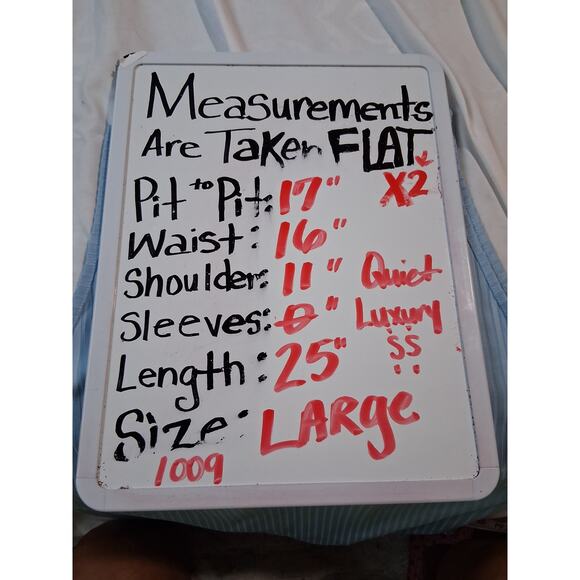 Measurements
Are Taken FLAT
Pit to Pit: 17" X2
Waist: 16"
Shoulder: 11" Quiet
Sleeves: 0" Luxury
Length: 25" $$
Size: LARGe
1009